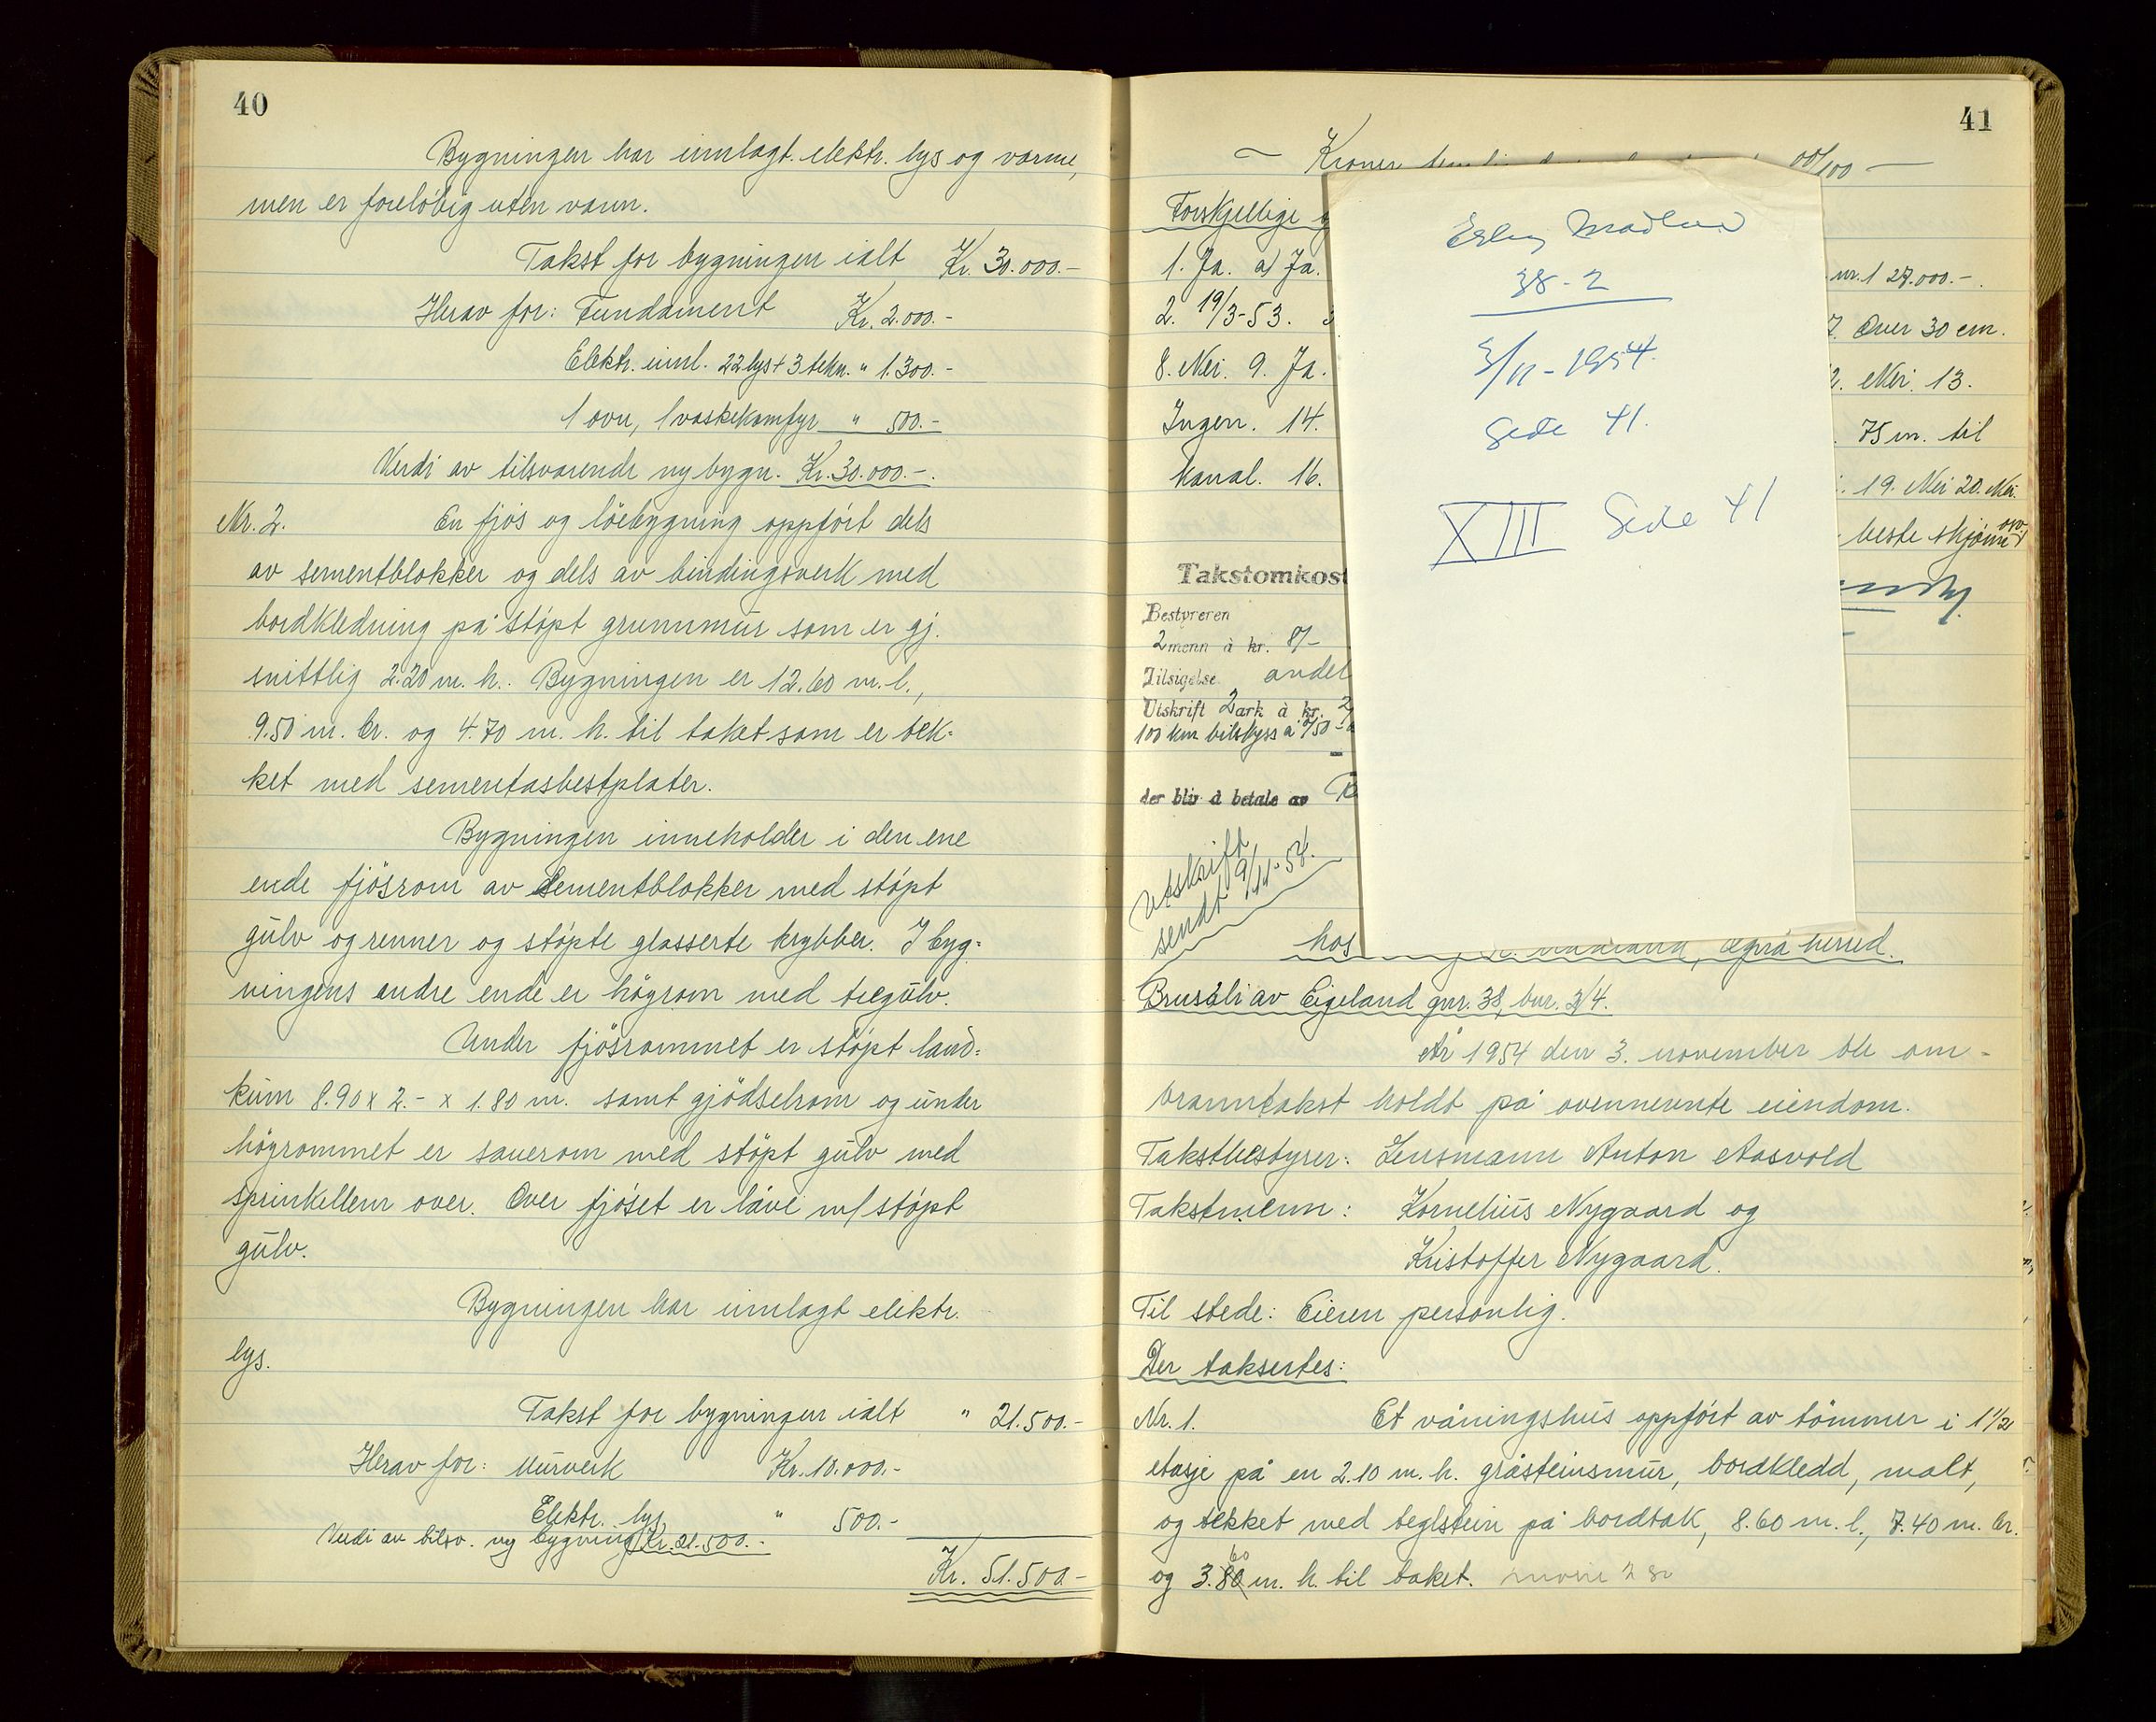 40
Bygningen har innlagt. elektr. lys og varme,
men er foreløbig uten vann.
Takst for bygningen ialt Kr. 30.000.-
Herav for: Fundament Kr. 2.000.-
Elektr. innl. 22 lys + 3 tekn. " 1.300.-
1 ovn, 1 vaskekomfyr " 500.-
Verdi av tilsvarende ny bygn. Kr. 30.000.-.
Nr. 2. En fjøs og løebygning oppført dels
av sementblokker og dels av bindingsverk med
bordkledning på støpt grunnmur som er gj.
snittlig 2.20 m. h. Bygningen er 12.60 m. l.,
9.50 m. br. og 4.70 m. h. til taket som er tek-
ket med sementasbestplater.
Bygningen inneholder i den ene
ende fjøsrom av sementblokker med støpt
gulv og renner og støpte glasserte krybber. I byg-
ningens andre ende er høyrom med tregulv.
Under fjøsrommet er støpt land-
kum 8.90 x 2.- x 1.80 m. samt gjødselrom og under
høyrommet er sauerom med støpt gulv med
sprinkellem over. Over fjøset er låve m/ støpt
gulv.
Bygningen har innlagt elektr.
lys.
Takst for bygningen ialt " 21.500.-
Herav for: Murverk Kr. 10.000.-
Elektr. lys " 500.-
Verdi av tilsv. ny bygning Kr. 21.500.-
Kr. 51.500.-
41
~ Kroner 00/100 -
Forskjellige
1. Ja. a) Ja. nr. 1 27.000.-.
2. 19/3-53. 7. Over 30 cm.
8. Nei. 9. Ja. Nei. 13.
Ingen. 14. 75 m. til
kanal. 16. 19. Nei 20. Nei.
beste skjønn
Takstomkost
Bestyreren
2 menn à kr. 8/-
Tilsigelse andel
Utskrift 2 ark à kr. 2
100 km. bilskyss à
der bliv å betale av
Utskrift
sendt 9/11-54.
Erling
38-2
3/11-1954.
Side 41.
XIII Side 41
hos herred.
Brusåli av Eigeland gnr. 38, bnr. 2/4.
År 1954 den 3. november ble om-
branntakst holdt på ovennevnte eiendom.
Takstbestyrer: Lensmann Anton Aasvold
Takstmenn: Kornelius Nygaard og
Kristoffer Nygaard.
Til stede: Eieren personlig.
Der taksertes:
Nr. 1. Et våningshus oppført av tømmer i 1 1/2
etasje på en 2.10 m. h. gråsteinsmur, bordkledd, malt,
og tekket med teglstein på bordtak, 8.60 m. l., 7.40 m. br.
60
og 3.80 m. h. til taket.